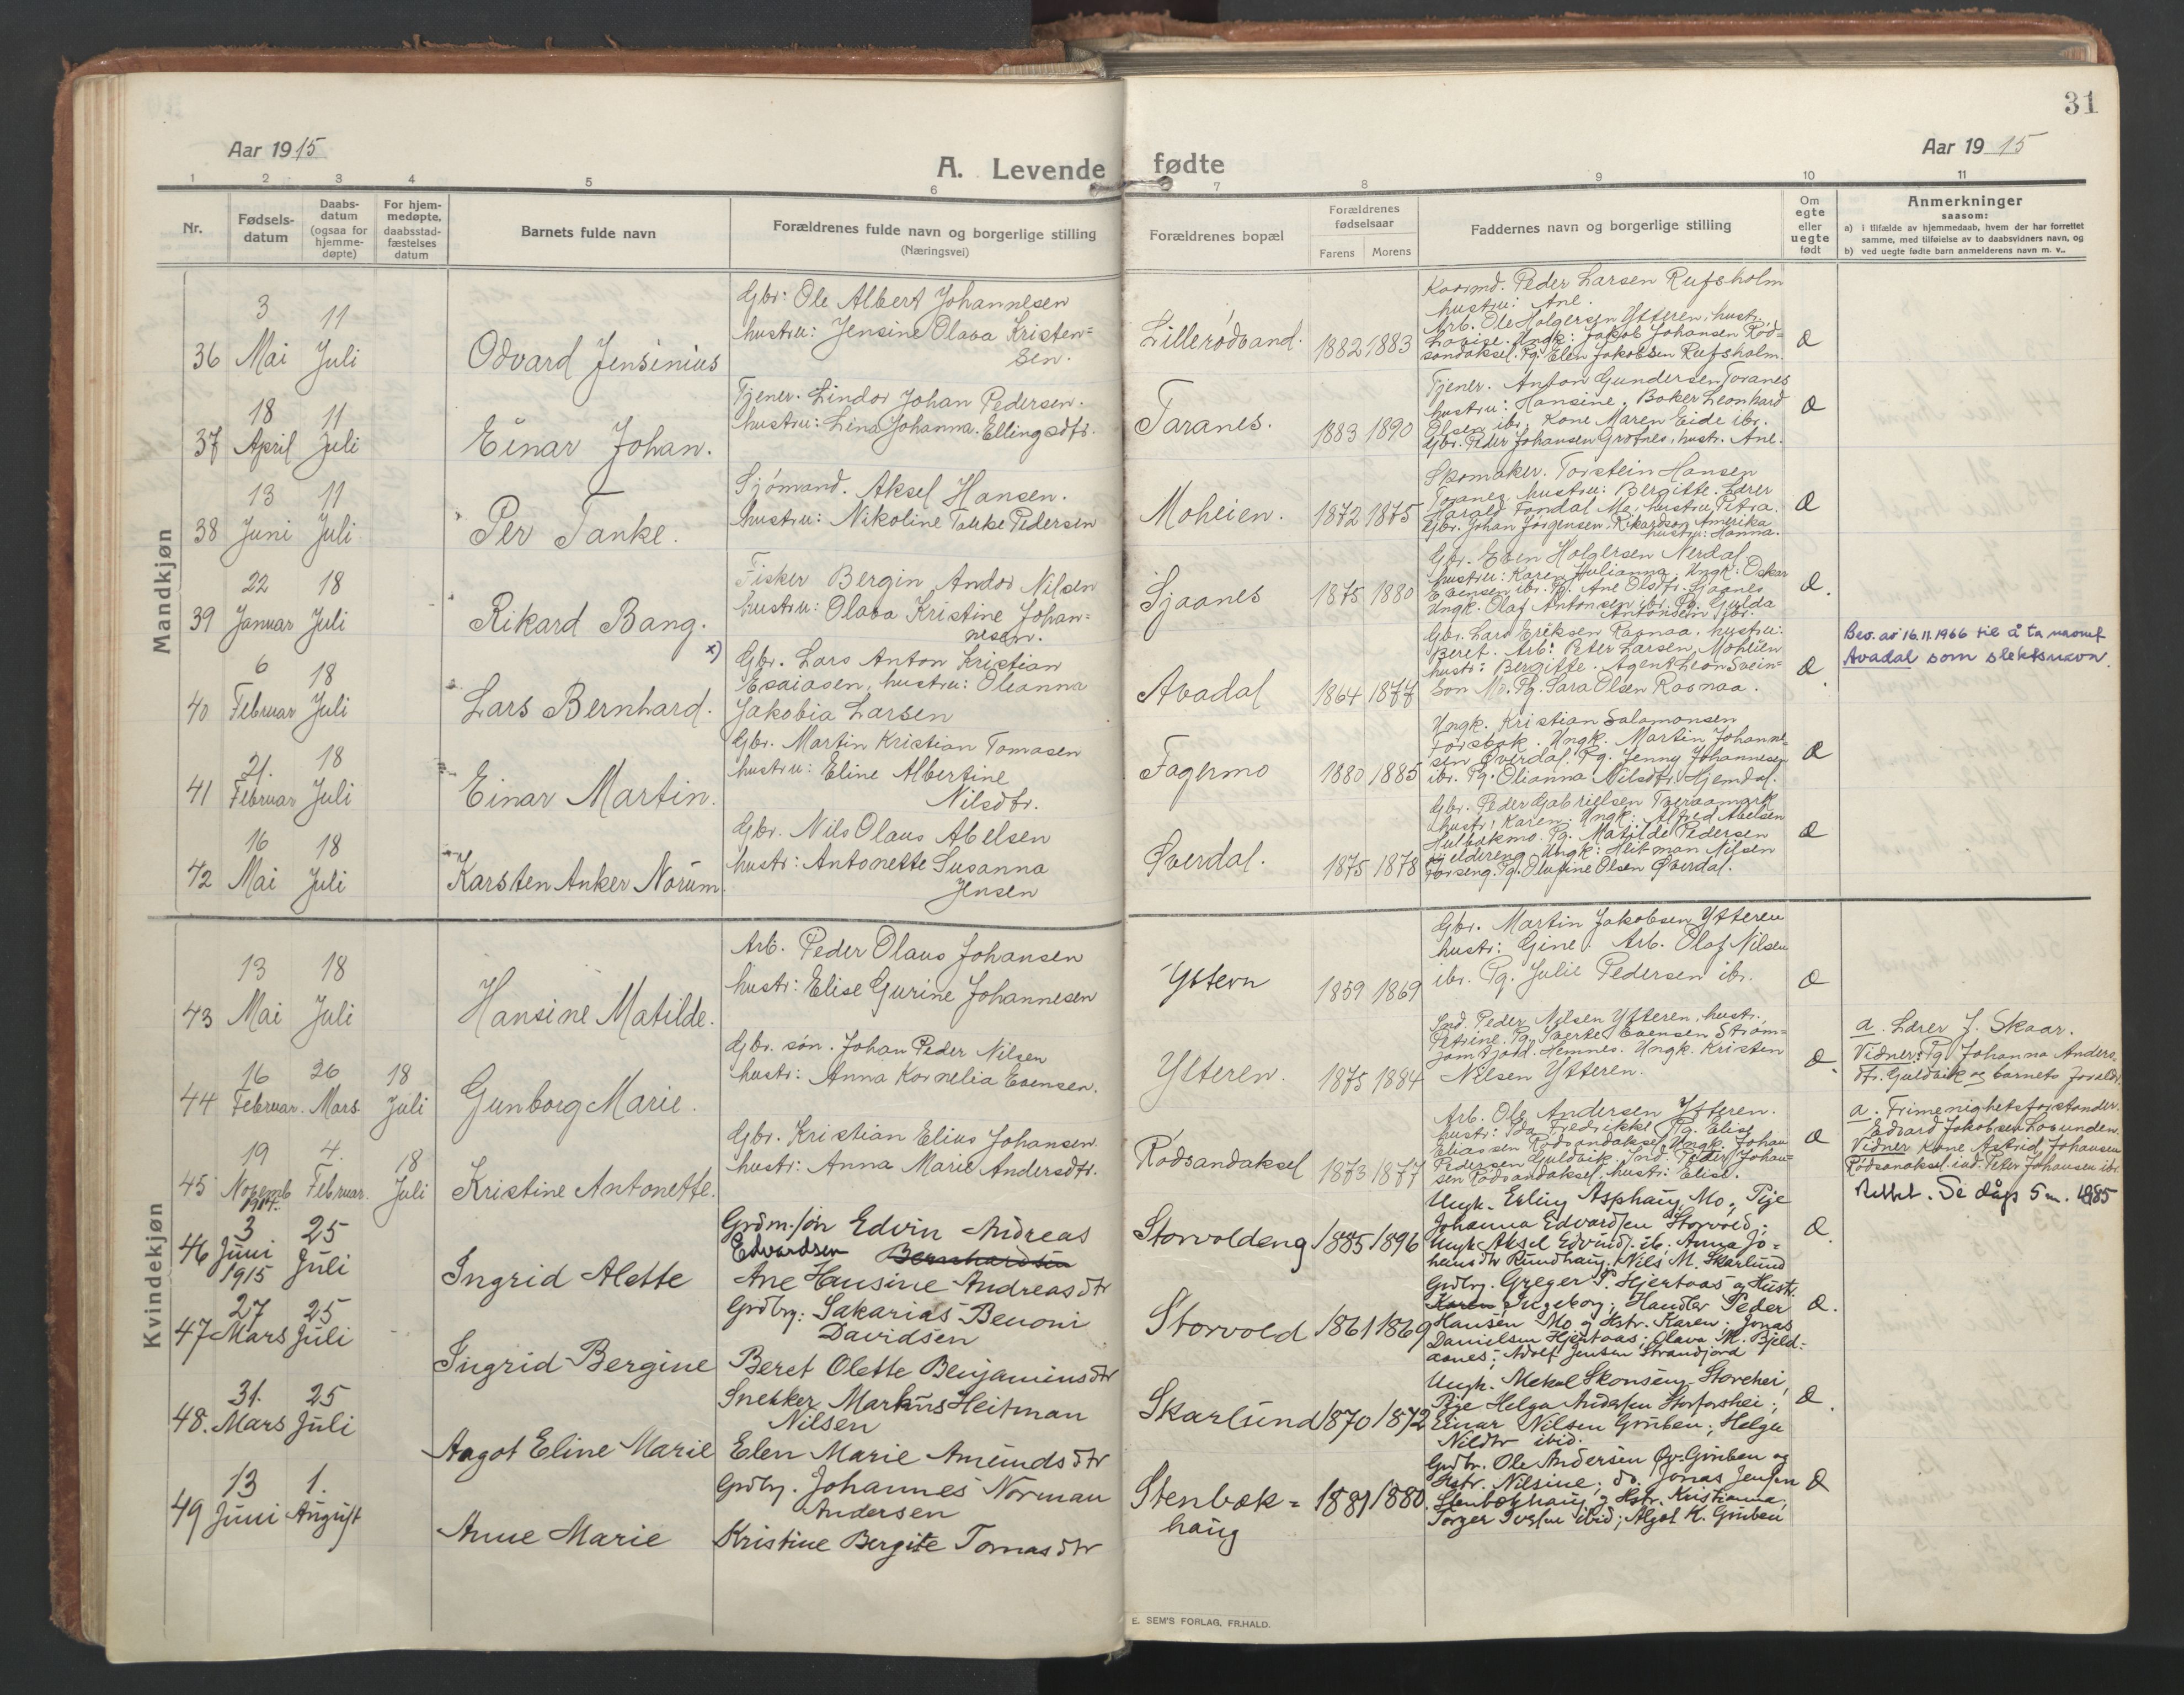 31
Aar 1915
A. Levende fødte
Aar 1915
1 2 3 4 5 6 7 8 9 10 11
Nr.
Fødsels-
datum
Daabs-
datum
(ogsaa for
hjemme-
døpte)
For hjem-
medøpte,
daabsstad-
fæstelses
datum
Barnets fulde navn
Forældrenes fulde navn og borgerlige stilling
(Næringsvei)
Forældrenes bopæl
Forældrenes
fødselsaar
Farens Morens
Faddernes navn og borgerlige stilling
Om
egte
eller
uegte
født
Anmerkninger
saasom:
a) i tilfælde av hjemmedaab, hvem der har forrettet
samme, med tilføielse av to daabsvidners navn, og
b) ved uegte fødte barn anmelderens navn m. v..
Mandkjøn
36 3 Mai 11 Juli
Odvard Jensinius
Gbr: Ole Albert Johannesen
hustru: Jensine Olava Kristen=
sen.
Lillerødvand. 1882 1883
Kaarmd. Peder Larsen Rufsholm
hustru: Ane.
Arb. Ole Holgersen Ytteren, hustr.
Lovise. Ungk: Jakob Johansen Rød=
sandaksel. Pg. Elen Jakobsen Rufsholm.
Æ
37 18 April 11 Juli
Einar Johan.
Tjener. Lindor Johan Pedersen.
hustru: Lina Johanna Ellingsdtr.
Toranes. 1883 1890
Tjener. Anton Gundersen Toranes
hustru: Hansine. Baker Leonhard
Olsen ibr. Kone Maren Eide ibr.
Gbr. Peder Johansen Grøfnes, hustr. Ane.
Æ
38 13 Juni 11 Juli
Per Tanke.
Sjømand. Aksel Hansen.
hustru: Nikoline Tanke Pedersen
Moheien. 1872 1875
Skomaker. Torstein Hansen
Toranes hustru: Bergitte. Lærer
Harald Fondal Mo, hustru Petra.
Gbr. Johan Jørgensen, Rikardson Amerika
hustru: Hanna.
Æ
39 22 Januar 18 Juli
Rikard Bang.
Fisker Bergin Andor Nilsen
hustru: Olava Kristine Johan=
nesen.
Sjaanes 1875 1880
Gbr. Even Holgersen Nerdal
hustru: Karen Julianna. Ungk: Oskar
Evensen ibr. Pg. Ane Olsdtr. Sjaanes
Ungk. Olaf Antonsen ibr. Pg. Gulda
Antonsen ibr.
Æ.
40 6 Februar 18 Juli
Lars Bernhard. x)
Gbr. Lars Anton Kristian
Esaiasen, hustru: Oleanna
Jakobia Larsen
Avadal 1864 1877
Gbr. Lars Eriksen Rasnaa, hustru:
Beret. Arb: Peter Larsen, Moheien
hustr: Bergitte. Agent Leon Svein=
son Mo. Pg. Sara Olsen Rasnaa.
Æ.
Bev. av 16.11.1966 til å ta navnet
Avadal som slektsnavn.
41 21. Februar 18 Juli
Einar Martin.
Gbr. Martin Kristian Tomasen
hustru: Eline Albertine
Nilsdtr.
Fagermo 1880 1885
Ungk. Kristian Salamonsen
Forsbak. Ungk. Martin Johanne=
sen Øverdal. Pg. Jenny Johannesen
ibr. Pg. Olianna Nilsdtr. Hjemdal.
Æ
42 16 Mai 18 Juli
Karsten Anker Norum.
Gbr. Nils Olaus Abelsen
hustr: Antonette Susanna
Jensen
Øverdal. 1875 1878
Gbr. Peder Gabrielsen Tveraamark
hustr: Karen. Ungk: Alfred Abelsen
Hulbækmo. Pg. Matilde Pedersen
Ungk: Heitman Nilsen
Forseng. Pg. Olufine Olsen Øverdal.
Æ
Kvindekjøn
43 13 Mai 18 Juli
Hansine Matilde.
Arb. Peder Olaus Johansen
hustr: Elise Gurine Johannesen
Yttern 1859 1869
Gbr. Martin Jakobsen Ytteren
hustr: Gine. Arb. Olaf Nilsen
ibr. Pg. Julie Pedersen ibr.
Æ
44 16 Februar. 26 Mars 18 Juli
Gunborg Marie.
Gbr. søn. Johan Peder Nilsen
hustr: Anna Kornelia Evensen.
Ytteren. 1875 1884
Ind. Peder Nilsen Ytteren, hustr.
Petrine. Pg. Sverte Evensen Strøm=
Hemnes. Ungk. Kristen
Nilsen Ytteren.
Æ.
a. Lærer J. Skaar.
Vidner: Pg. Johanna Anders=
dtr. Guldvik og barnets foreldr.
45 19 Novemb 1914. 4. Februar. 18 Juli
Kristine Antonette.
Gbr. Kristian Elius Johansen.
hustr: Anna Marie Andersdtr.
Rødsandaksel 1873 1877
Arb. Ole Andersen Ytteren.
hustr: Ida Fredrikke Pg. Elise
Eliassen Rødsandaksel. Ungk. Johan
Pedersen Guldvik. Ind. Peder Johan=
sen Rødsandaksel, hustr: Elise.
Æ
a. Frimenighetsforstander.
Edvard Jakobsen Lovunden.
Vidner Kone Astrid Johansen
Rødsandaksel. ind. Peter Johansen ibr.
46 3 Juni 1915 25 Juli
Ingrid Alette
Grdm.søn Edvin Andreas
Edvardsen Bernhardsen
Ane Hansine Andreasdtr
Storvoldeng 1885 1896
Ungk. Erling Asphaug Mo, Pije
Johanna Edvardsen Storvold;
Ungk Aksel Edvinds. ib. Anna Jo=
hansdtr Rundhaug, Nils M. Skarlund
Æ.
Rettet. Se dåps 5 m. 1985
47 27 Mars 25 Juli
Ingrid Bergine
Grdbr: Sakarias Benoni
Davidsen
Beret Olette Benjaminsdtr
Storvold 1861 1869
Grdbr. Greger P. Hjertaas og Hustr.
Karen Ingeborg; Handler Peder
Hansen Mo og Hstr. Karen; Jonas
Danielsen Hjertaas; Olava M. Bjeld=
aanes; Adolf Jensen Strandjord
Æ.
48. 31. Mars 25 Juli
Aagot Eline Marie
Snekker Markus Heitman
Nilsen
Elen Marie Amundsdtr
Skarlund 1870 1872
Ungk. Mekal Skonseng Storehei,
Pije Helga Andersen Storforshei;
Einar Nilsen Gruben; Helga
Nilsdtr ibid.
Æ.
49 13 Juni 1. August
Anne Marie
Grdbr. Johannes Norman
Andersen
Kristine Bergite Tomasdtr
Stenbæk=
haug 1881 1880
Grdbr. Ole Andersen Øv. Gruben og
Hstr. Nilsine; do. Jonas Jensen
Stenbækhaug og Hstr. Kristianna,
Torger Iversen ibid; Algot K. Gruben
Æ
E. SEM'S FORLAG, FR.HALD.